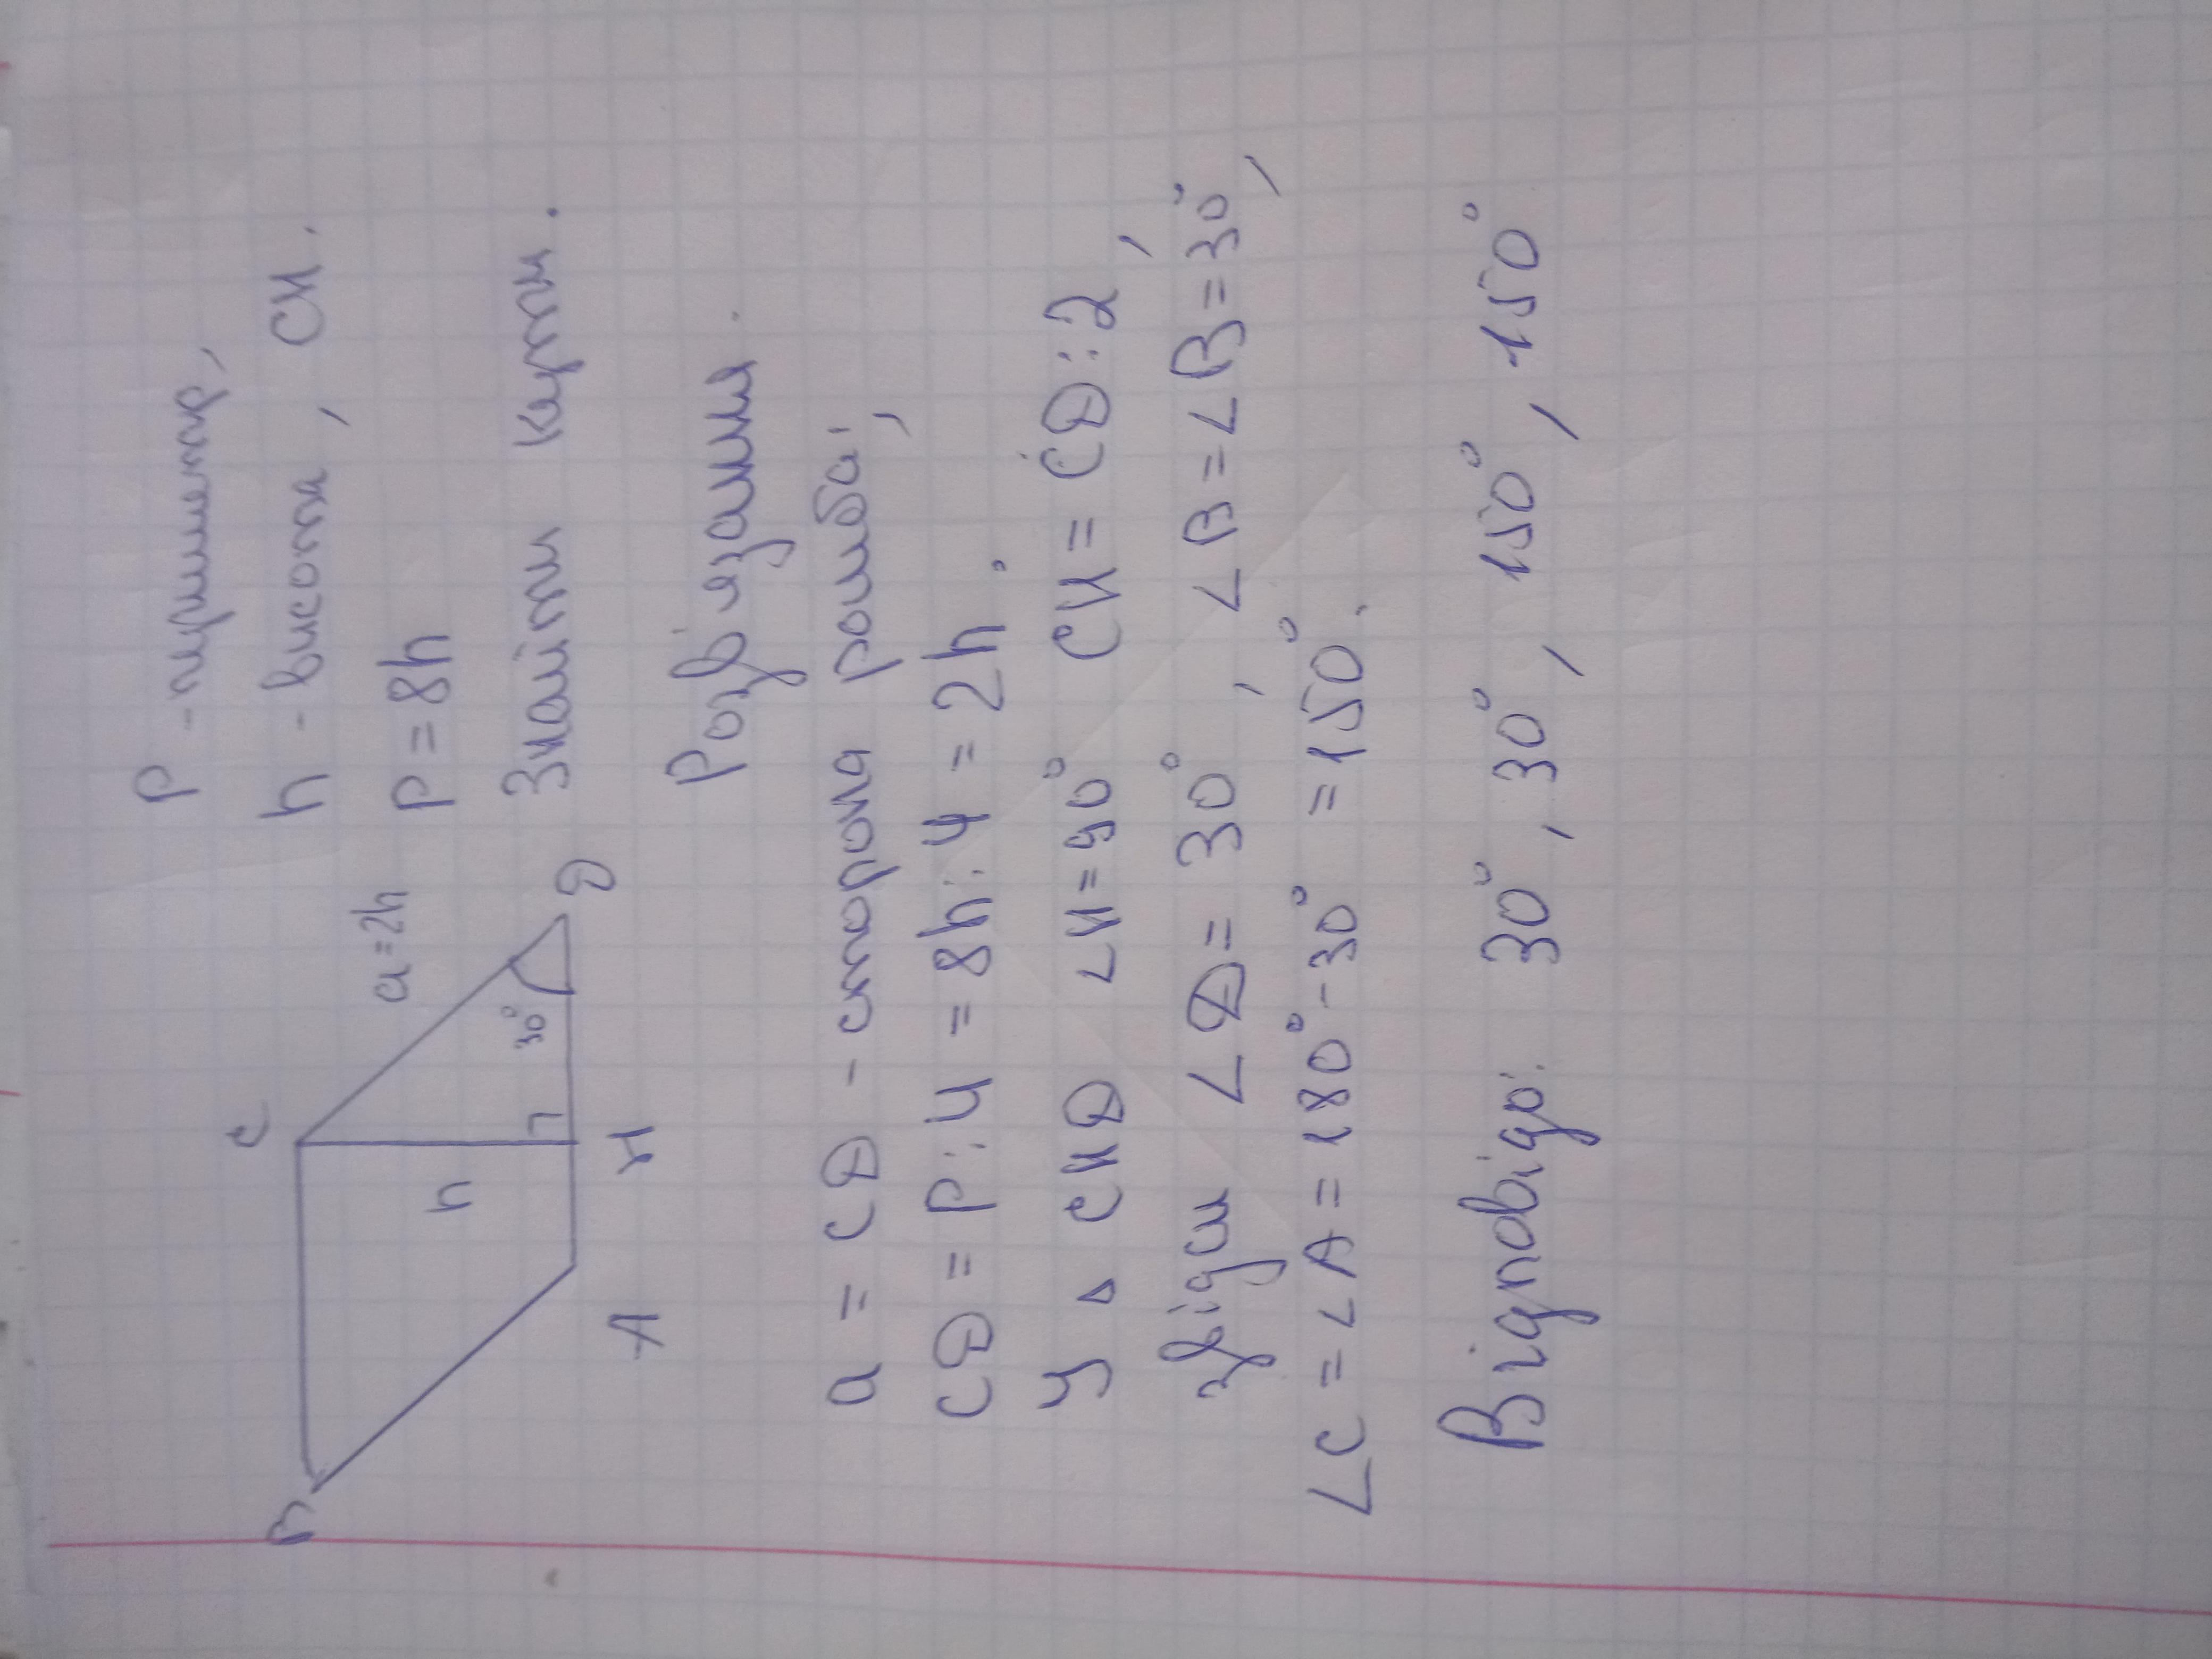 P - периметр,
h - висота, CH.
P = 8h
Знайти кути.
B
C
a = 2h
h
30°
D
A
H
Розв'язання.
a = CD - сторона ромба;
CD = P:4 = 8h:4 = 2h.
У △ CHD ∠H = 90° CH = CD:2,
звідси ∠D = 30°, ∠B = ∠B = 30°,
∠C = ∠A = 180° - 30° = 150°.
Відповідь: 30°, 30°, 150°, 150°